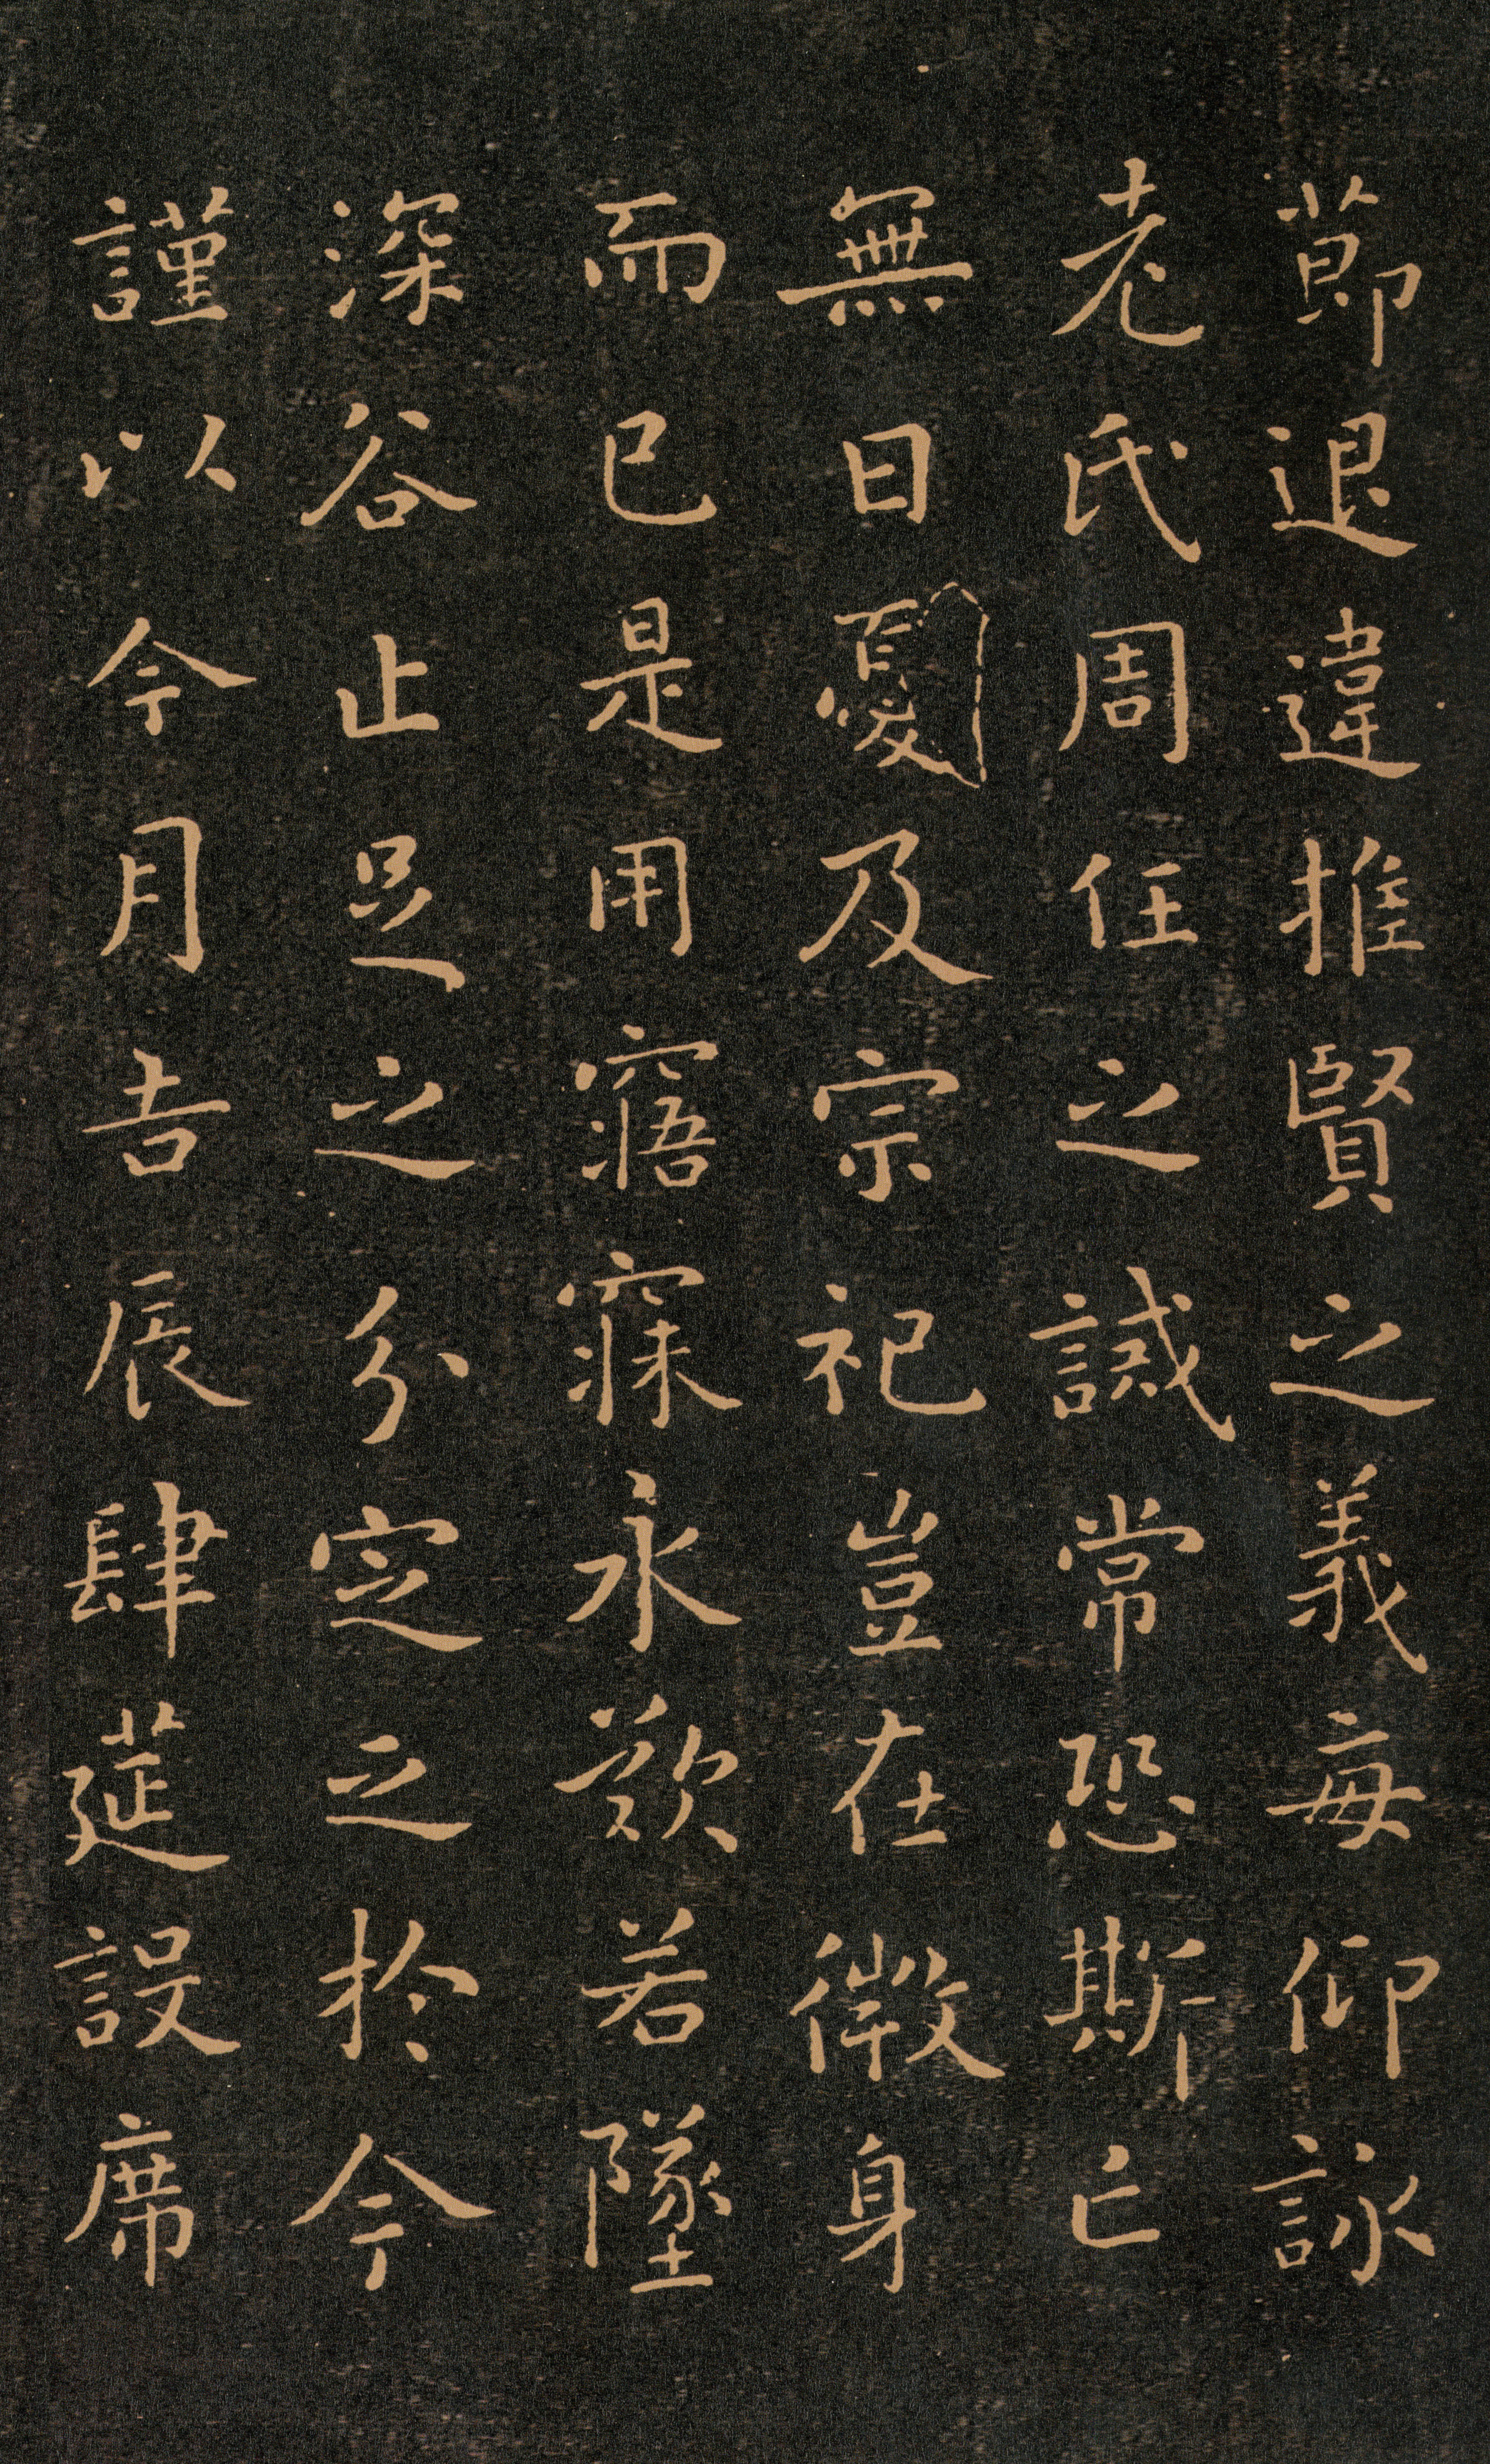 節退違推賢之義每仰詠
老氏周任之誡常恐斯亡
無日憂及宗祀豈在微身
而已是用寤寐永歎若墜
深谷止足之分定之於今
謹以今月吉辰肆莚設席